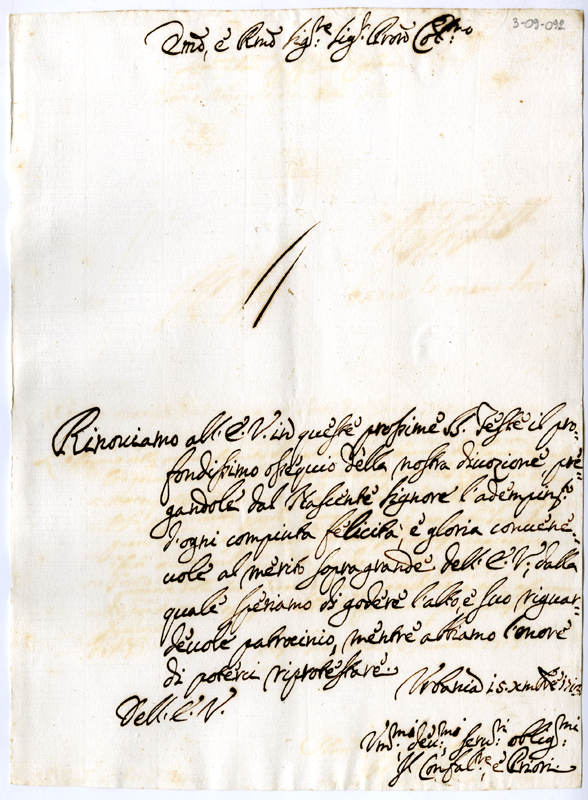 3-09-092
Emo, e Rmo Sigre Sigr Pron Colmo
Rinoviamo all' E. V. in queste prossime SS. Feste il pro-
fondissimo ossequio della nostra divozione, pre-
gandole dal Nascente Signore l'adempimto
d'ogni compiuta felicità, e gloria convene-
vole al merito sopragrande dell' E. V., dalla
quale speriamo di godere l'alto, e suo riguar-
devole patrocinio, mentre abbiamo l'onore
di poterci riprotestare
Urbania 15 Xmbre
Dell' E. V.
Vmi devmi servri obligmi
Il Confalre, e Priori